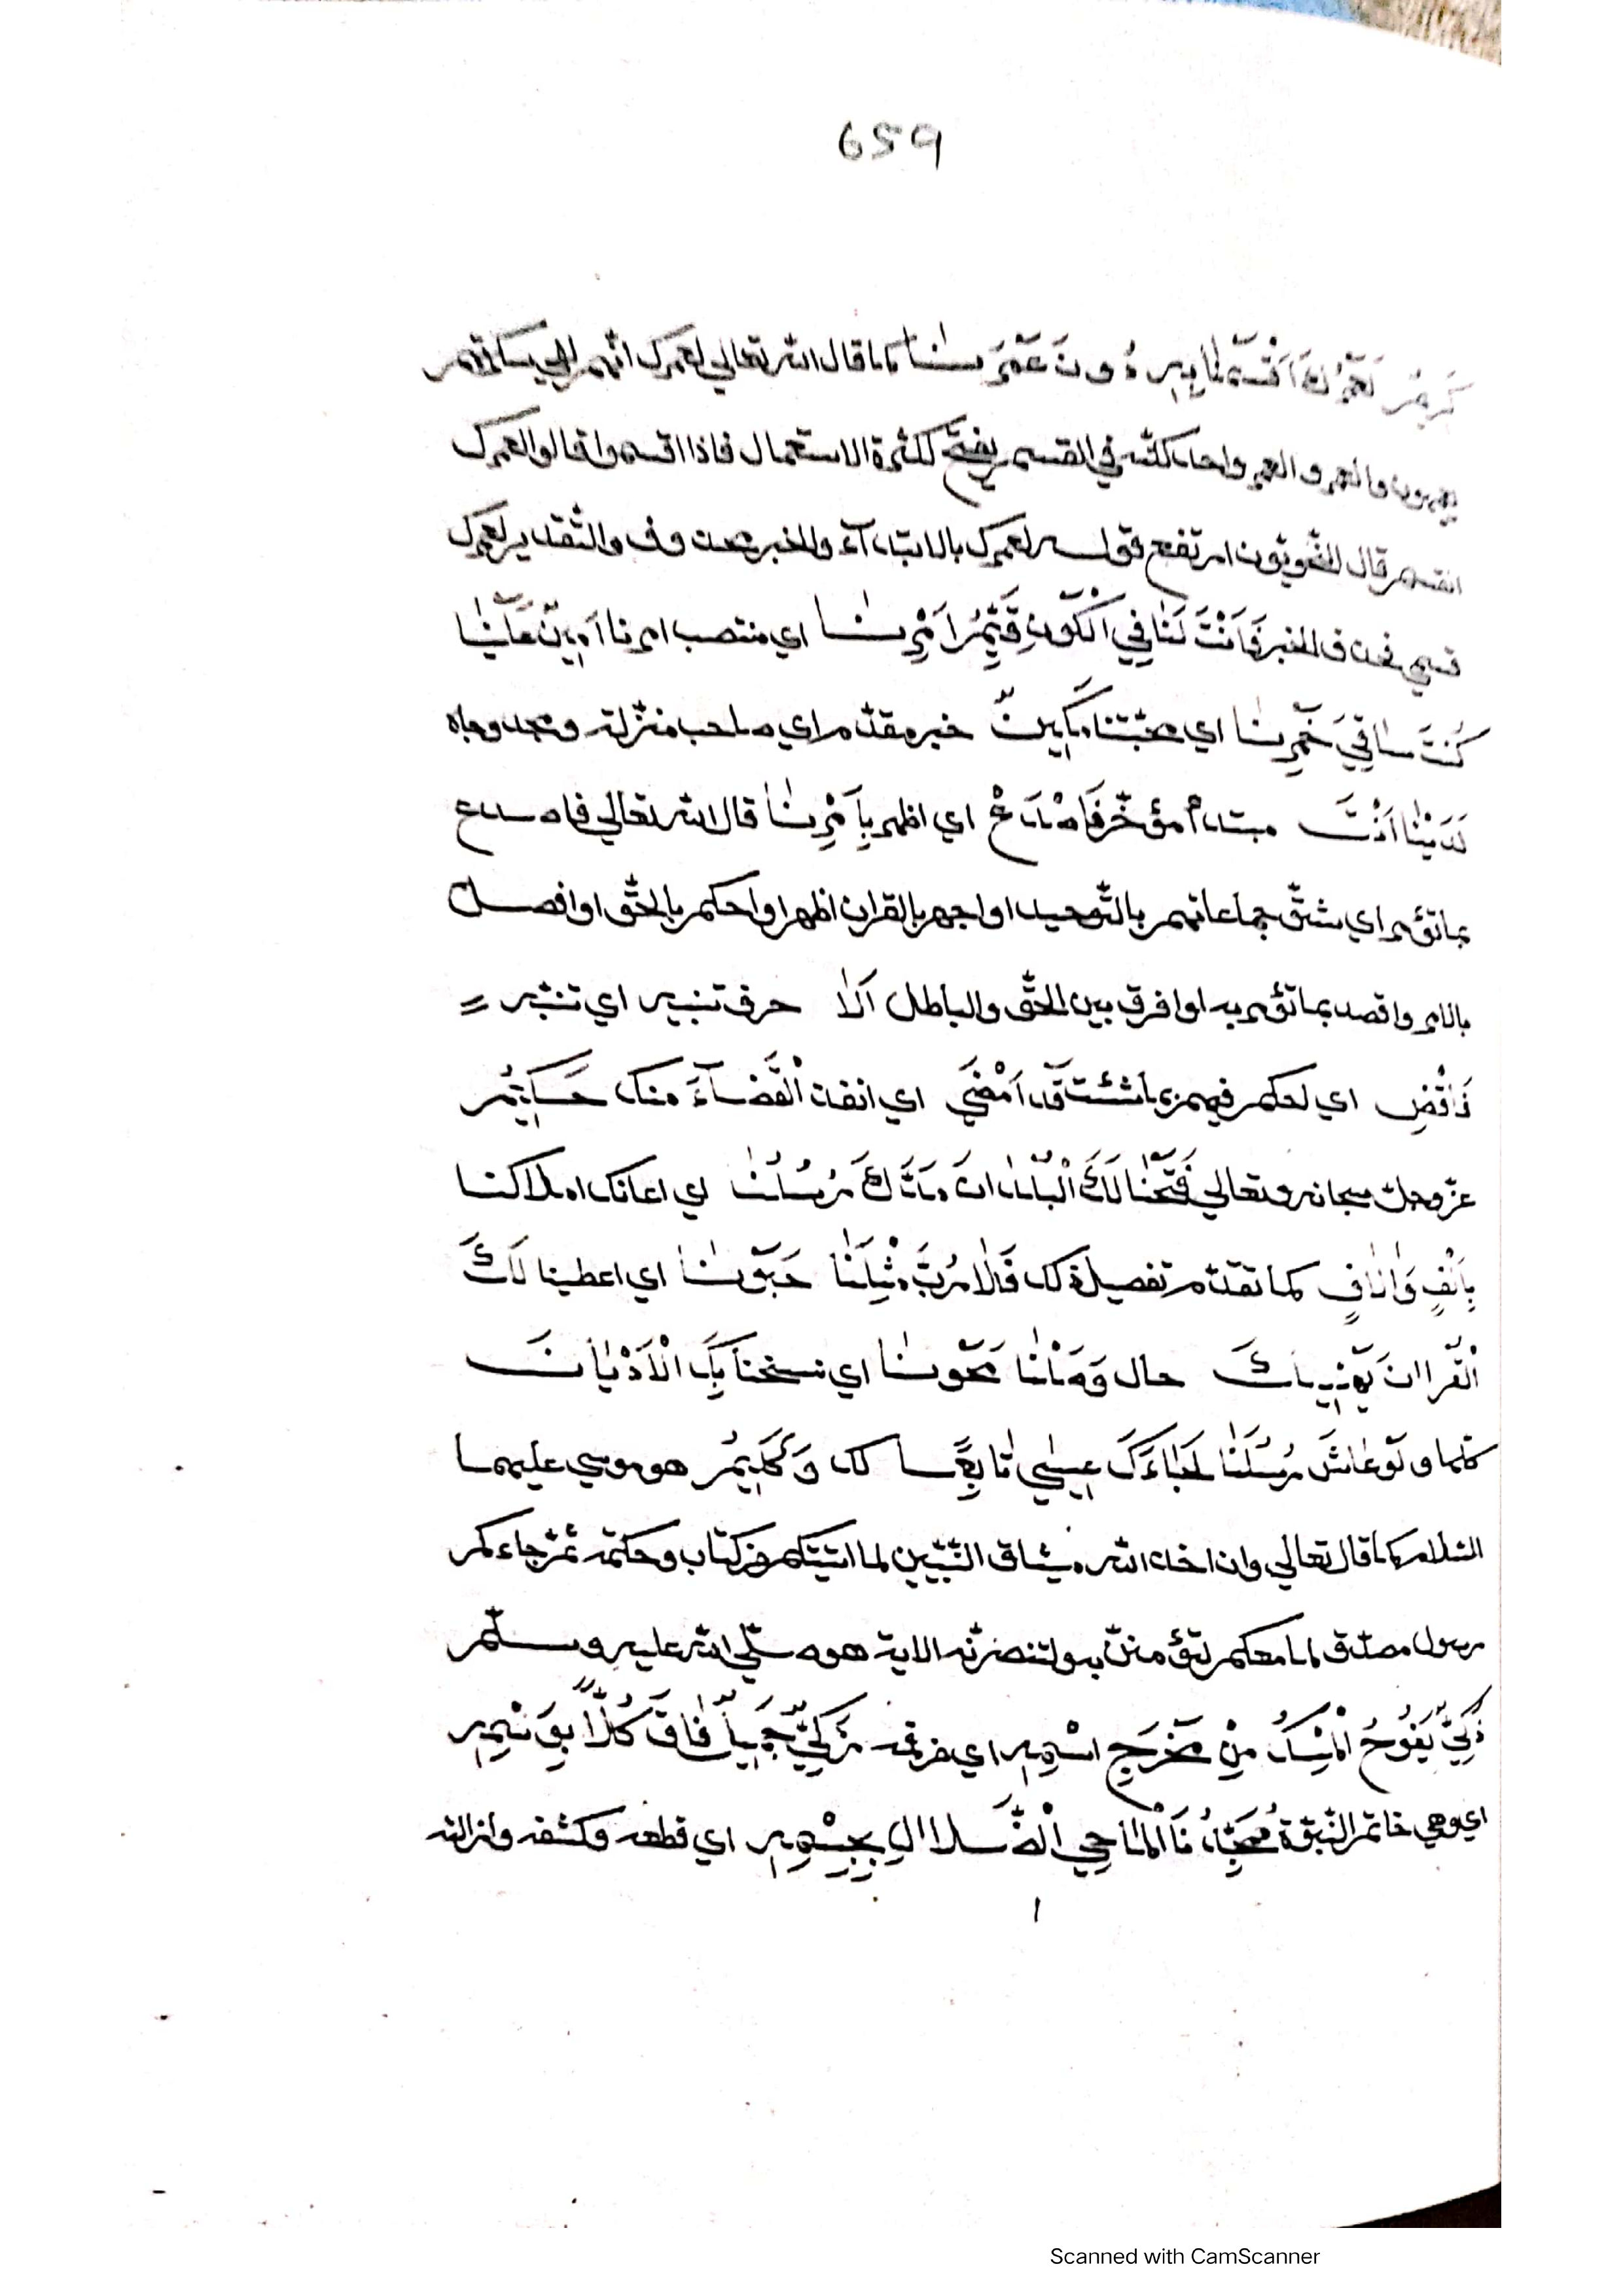 659
كَرِيمٌ لَعَمْرُكَ اَقْسَمْنَا بِهِ دُونَ عَمْرِنَا كما قال الله تعالي لعمرك انهم لفي سكرتهم
يعمهون والعمر والعمر واحد لكنّه في القسم يفتح لكثرة الاستعمال فاذا اقسموا قالوا لعمرك
القسم قال النّحويّون ارتفع قوله لعمرك بالابتداء والخبر محذوف والتّقدير لعمرك
قسمي فحذف الخبر فَاَنْتَ لَنَا فِي الْكَوْنِ قَيِّمُ اَمْرِنَا اي منتصب امرنا اَمِينٌ عَلَيْنَا
كُنْتَ سَاقِيَ خَمْرِنَا اي محبّتنا مَكِينٌ خبر مقدّم اي صاحب منزلة ومجد وجاه
لَدَيْنَا اَنْتَ مبتدأ مؤخّر فَاصْدَعْ اي اظهر بِاَمْرِنَا قال الله تعالي فاصدع
بما تؤمر اي شقّ جماعاتهم بالتّوحيد او اجهر بالقران اظهر او احكم بالحقّ او افصل
بالامر واقصد بما تؤمر به او افرق بين الحقّ والباطل اَلَا حرف تنبيه اي تنبّه =
فَاقْضِ اي احكم فيهم بما شئت قَدْ اَمْضَي اي انفذ الْقَضَآءَ منك حَكِيمٌ
عزّ وجلّ سبحانه وتعالي فَتَحْنَا لَكَ الْبُلْدَانَ مَدَّكَ رُسُلُنَا اي اعانك املاكنا
بِاَلْفٍ وَاٰلَافٍ كما تقدّم تفصيل ذلك فَلَا رُبَّ مِثْلَنَا حَبَوْنَا اي اعطينا لَكَ
الْقُرْاٰنَ يَهْدِيكَ حال وَصَلْنَا مَحَوْنَا اي نسخنا بِكَ الْاَدْيَانَ
كلّها ولَوْ عَاشَ رُسُلُنَا لَجَاءَكَ عِيسٰي تَابِعًا لك وَكَلِيمٌ هو موسي عليهما
السّلام كما قال تعالي واذ اخذ الله ميثاق النّبيّين لما اتيتكم من كتاب وحكمة ثمّ جاءكم
رسول مصدّق لما معكم لتؤمننّ به ولتنصرنّه الاية هو صلّي الله عليه وسلّم
ذَكِيٌّ يَفُوحُ الْمِسْكُ مِنْ مَخْرَجِ اسْمِهِ اي من فمه زَكِيٌّ حَبِيبٌ فَاقَ كُلًّا بِوَسْمِهِ
اي وهي خاتم النّبوّة مُحَمَّدُنَا الْمَاحِي الضَّلَالَ بِجِسْمِهِ اي قطعه وكشفه وازالته